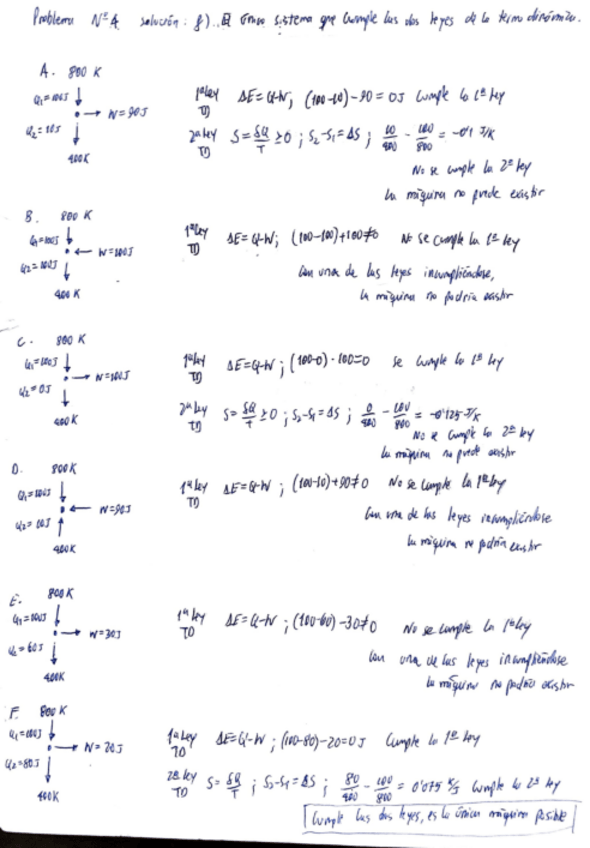 Problema Nº 4 solución: f). El único sistema que cumple las dos leyes de la termodinámica.
A. 800 K
Q₁=100J
W=90J
Q₂=10J
400K
1ª ley TD ΔE=Q-W; (100-10)-90=0J Cumple la 1ª ley
2ª ley TD S=δQ/T ≥0; S₂-S₁=ΔS; 10/400 - 100/800 = -0'1 J/K
No se cumple la 2ª ley
La máquina no puede existir
B. 800 K
Q₁=100J
W=100J
Q₂=100J
400 K
1ª ley TD ΔE=Q-W; (100-100)+100≠0 No se cumple la 1ª ley
Con una de las leyes incumpliéndose,
la máquina no podría existir
C. 800 K
Q₁=100J
W=100J
Q₂=0J
400K
1ª ley TD ΔE=Q-W; (100-0)-100=0 se cumple la 1ª ley
2ª ley TD S=δQ/T ≥0; S₂-S₁=ΔS; 0/400 - 100/800 = -0'125 J/K
No se cumple la 2ª ley
La máquina no puede existir
D. 800K
Q₁=100J
W=90J
Q₂=10J
400K
1ª ley TD ΔE=Q-W; (100-10)+90≠0 No se cumple la 1ª ley
Con una de las leyes incumpliéndose
la máquina no podría existir
E. 800K
Q₁=100J
W=30J
Q₂=60J
400K
1ª ley TD ΔE=Q-W; (100-60)-30≠0 No se cumple la 1ª ley
Con una de las leyes incumpliéndose
la máquina no podría existir
F. 800 K
Q₁=100J
W=20J
Q₂=80J
400K
1ª ley TD ΔE=Q-W; (100-80)-20=0J Cumple la 1ª ley
2ª ley TD S=δQ/T; S₂-S₁=ΔS; 80/400 - 100/800 = 0'075 K/J Cumple la 2ª ley
Cumple las dos leyes, es la única máquina posible